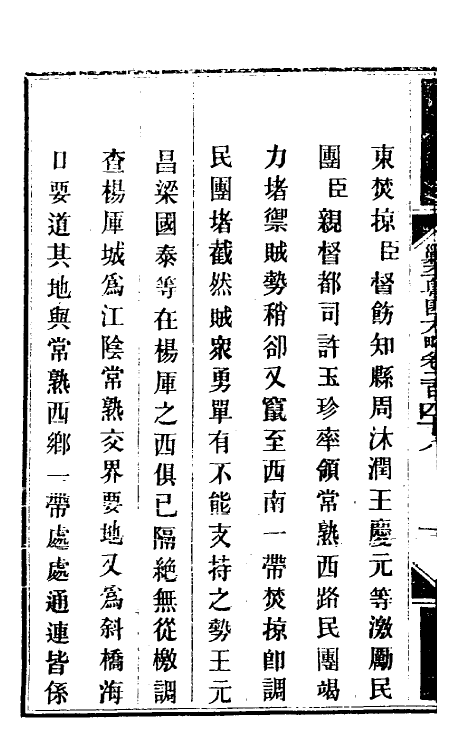 東焚掠臣督飭知縣周沐潤王慶元等激勵民
團臣親督都司許玉珍率領常熟西路民團竭
力堵禦賊勢稍卻又竄至西南一帶焚掠卽調
民團堵截然賊衆勇單有不能支持之勢王元
昌梁國泰等在楊厙之西俱已隔絶無從檄調
查楊厙城爲江陰常熟交界要地又爲斜橋海
口要道其地與常熟西鄉一帶處處通連皆係